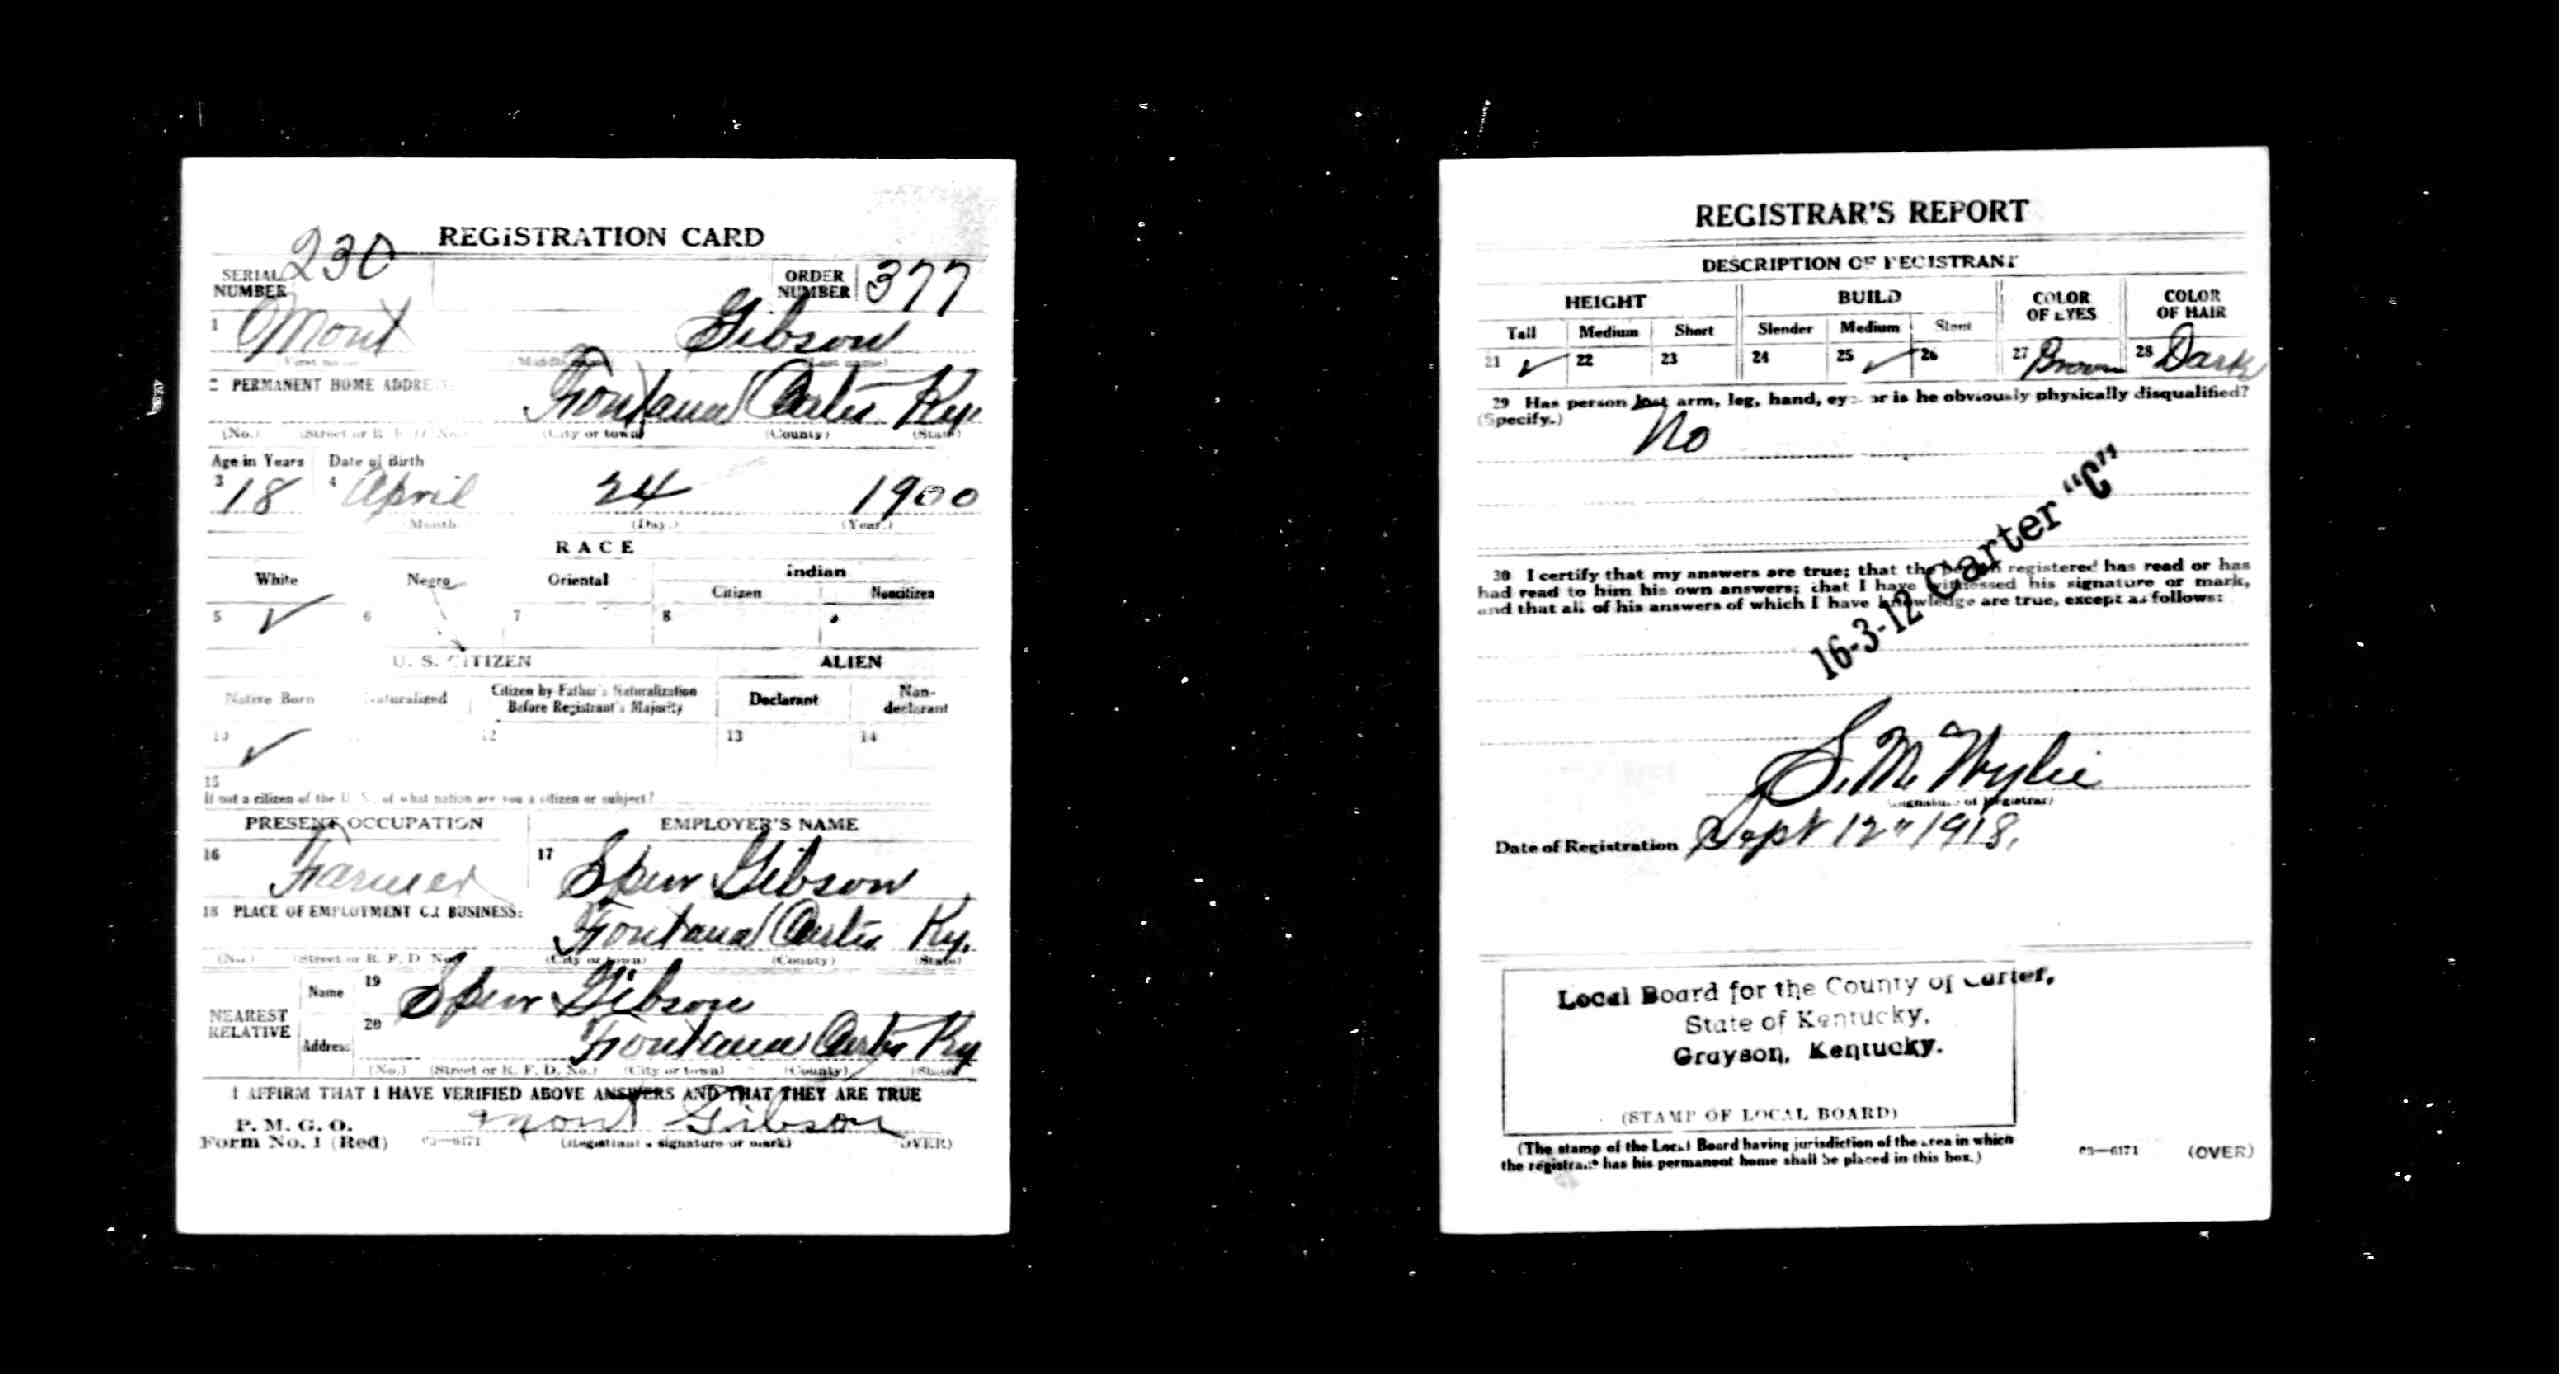 REGISTRATION CARD
SERIAL NUMBER 230
ORDER NUMBER 377
1 Mont Gibson
First name Middle name Last name
2 PERMANENT HOME ADDRESS
Fontana Carter Ky.
(No.) (Street or R. F. D. No.) (City or town) (County) (State)
Age in Years Date of Birth
3 18 4 April 24 1900
(Month) (Day.) (Year.)
RACE
White Negro Oriental Indian
Citizen Noncitizen
5 ✓ 6 7 8
U. S. CITIZEN ALIEN
Native Born Naturalized Citizen by Father's Naturalization Before Registrant's Majority Declarant Non-declarant
10 ✓ 12 13 14
15
If not a citizen of the U. S., of what nation are you a citizen or subject?
PRESENT OCCUPATION EMPLOYER'S NAME
16 Farmer 17 Gibson
18 PLACE OF EMPLOYMENT OR BUSINESS:
Fontana Carter Ky.
(No.) (Street or R. F. D. No.) (City or town) (County) (State)
NEAREST RELATIVE
Name 19 Gibson
Address 20 Fontana Carter Ky
(No.) (Street or R. F. D. No.) (City or town) (County) (State)
I AFFIRM THAT I HAVE VERIFIED ABOVE ANSWERS AND THAT THEY ARE TRUE
P. M. G. O.
Form No. 1 (Red) 03—6171 Mont Gibson
(Registrant's signature or mark) (OVER)
REGISTRAR'S REPORT
DESCRIPTION OF REGISTRANT
HEIGHT BUILD COLOR OF EYES COLOR OF HAIR
Tall Medium Short Slender Medium Stout
21 ✓ 22 23 24 25 ✓ 26 27 Brown 28 Dark
29 Has person lost arm, leg, hand, eye, or is he obviously physically disqualified?
(Specify.) No
30 I certify that my answers are true; that the person registered has read or has
had read to him his own answers; that I have witnessed his signature or mark,
and that all of his answers of which I have knowledge are true, except as follows:
16-3-12 Carter "C"
S. M. Wylie
(Signature of Registrar)
Date of Registration Sept 12" 1918.
Local Board for the County of Carter,
State of Kentucky,
Grayson, Kentucky.
(STAMP OF LOCAL BOARD)
(The stamp of the Local Board having jurisdiction of the area in which
the registrant has his permanent home shall be placed in this box.)
03—6171 (OVER)